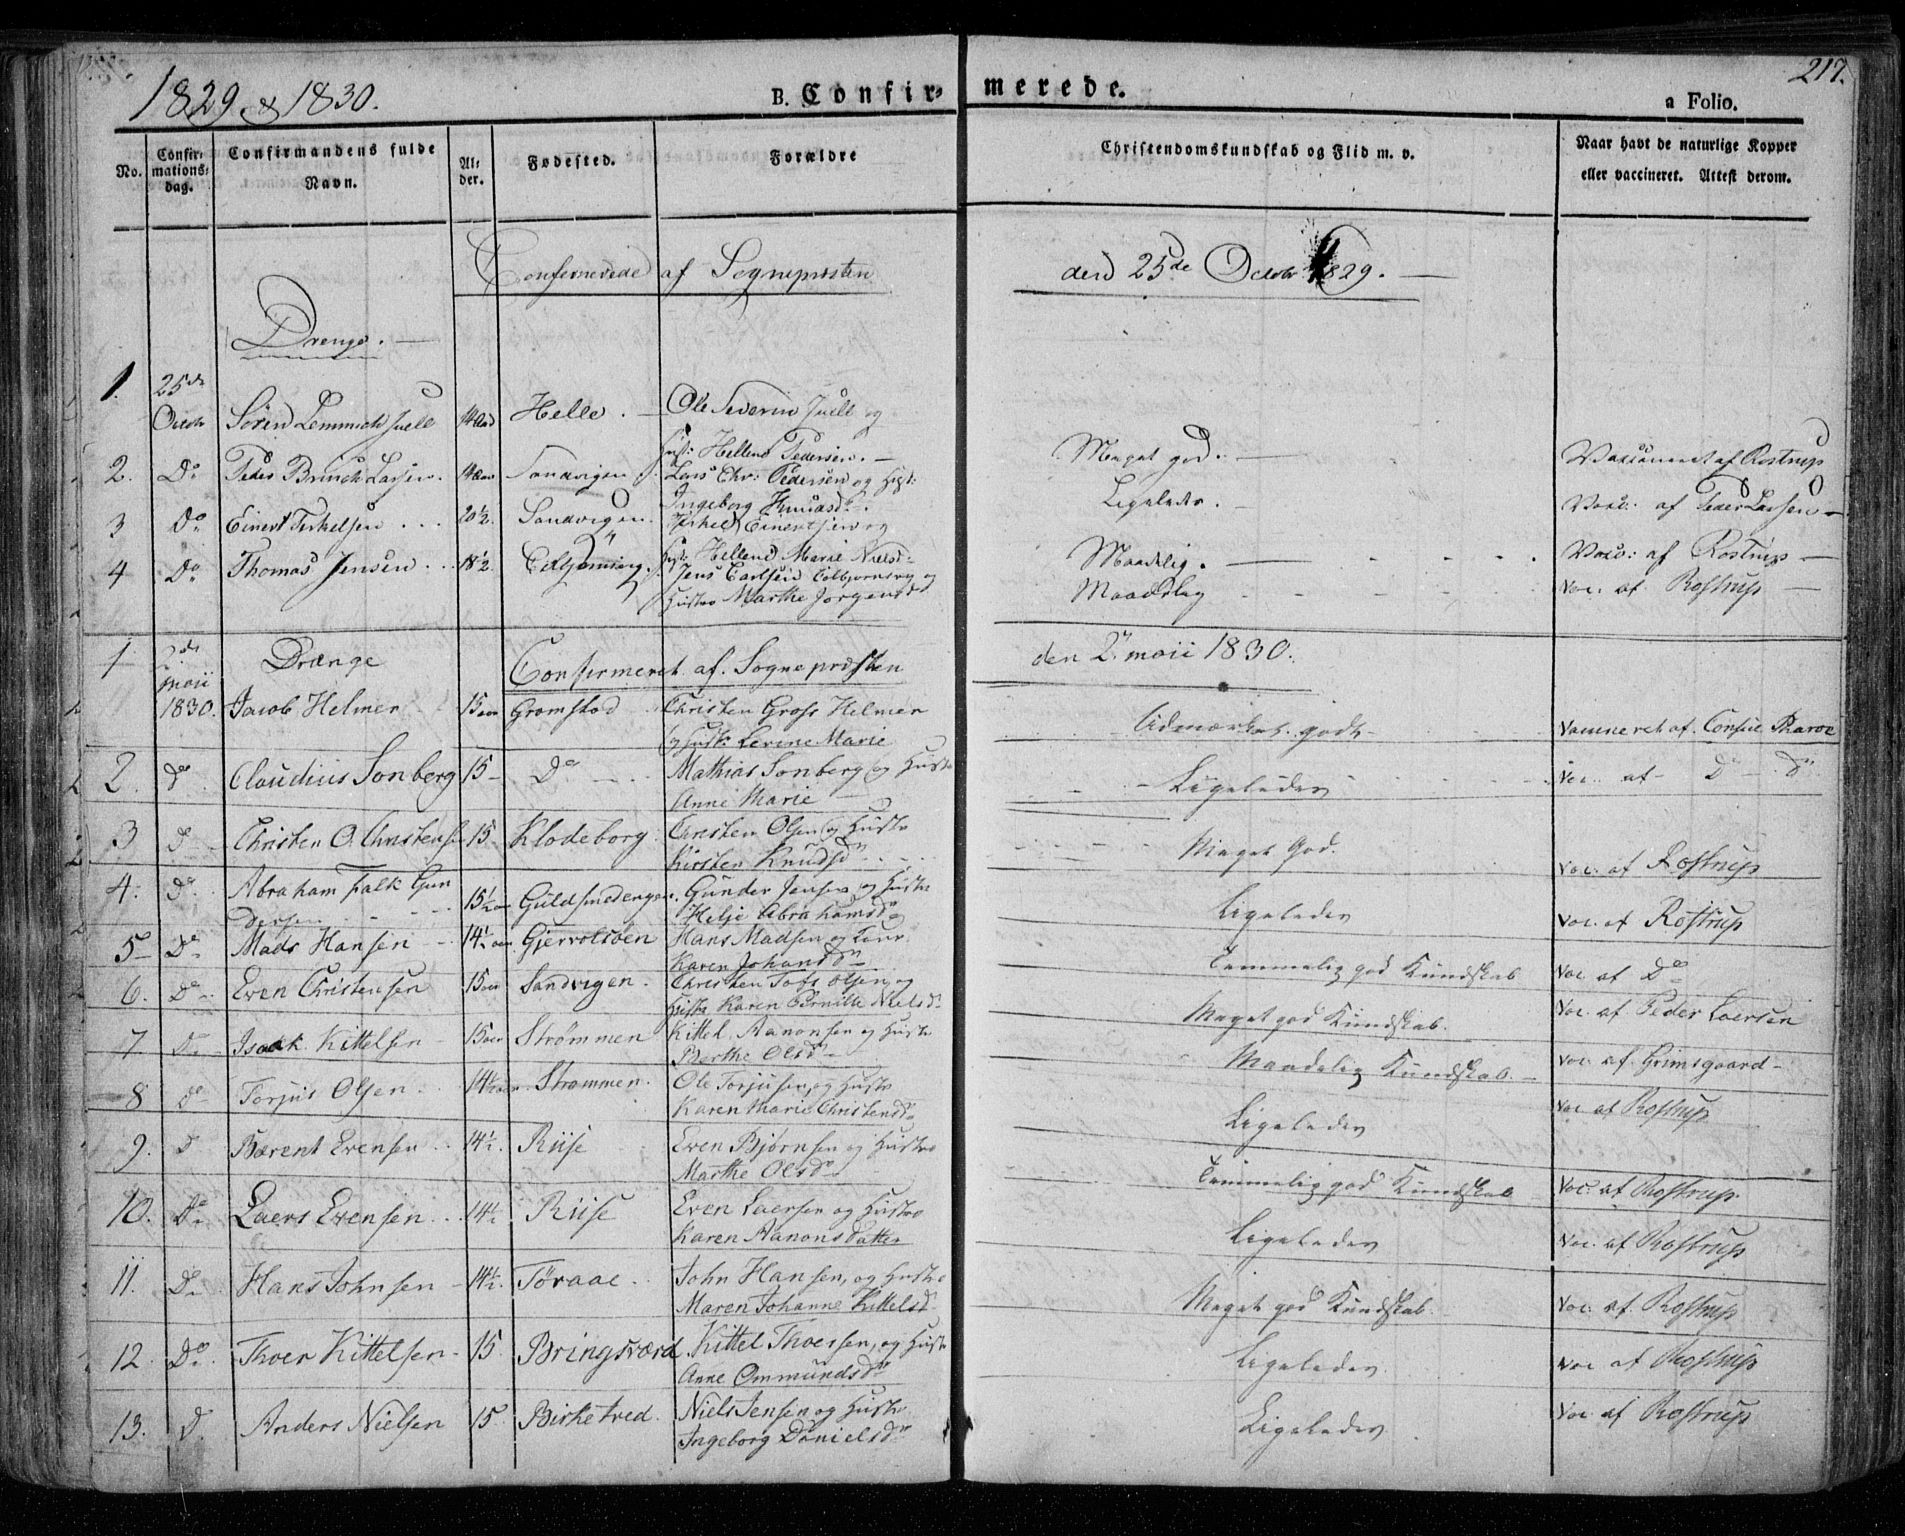 1829 & 1830.
B. Confir-
merede.
217.
a Folio.
No.
Confir-
mations-
dag.
Confirmandens fulde
Navn.
Al-
der.
Fødested.
Forældre
Christendomskundskab og Flid m. v.
Naar havt de naturlige Kopper
eller vaccineret. Attest derom.
Confirmerede af Sognepresten
den 25de Octobr 1829.
Drenge.
1. 25de
Octobr Søren Lemmich Juell 14 Helle. Ole Severin Juell og
Hust: Hellene Pedersen. Meget god. Vaccineret af Rostrup
2. Do Peder Brinch Larsen. 14 Sandvigen Lars Chr: Pedersen og Hust:
Ingeborg Knudsd. Ligeledes. Vacc: af Peder Larsen
3 Do Einert Terkelsen 20½. Sandvigen. Terkel Einertsen og
Hust: Hellene Marie Nielsd. Maadelig. Vacc: af Rostrup
4 Do Thomas Jensen 18½ Jens Carlsen og
Hustro Marthe Jørgensd Maadelig Vac. af Rostrup
1 2de
maii
1830. Drænge Confirmeret af Sognepræsten den 2 maii 1830.
Jacob Helmer 15 aar Gromstad Christen Gross Helmer
og Hust: Lerine Marie Udmærket godt Vacineret af Consul Pharoe
2. Do Claudius Sonberg 15 Do Mathias Sonberg og Hustr
Anne Marie Ligeledes Vac. af Do Do
3 Do Christen O. Christensen 15 Klodeborg Christen Olsen og Hustr
Kirsten Knudsd Meget God. Vac: af Rostrup
4. Do Abraham Falk Gun
dersen 15½ aar Guldsmedengen. Gunder Jensen og Hustr
Helje Abrahamsd Ligeledes Vac. af Rostrup
5 Do Mads Hansen 14½ aar Gjervolsøen Hans Madsen og
Karen Johansd Temmelig god Kundskab Vac af Do
6. Do Even Christensen 15 aar Sandvigen. Christen Olsen og
Hustr Karen Pernille Nielsd Meget god Kundskab. Vac. af Peder Laersen
7 Do Isaak Kittelsen 15 aar Strømmen Kittel Aanonsen og Hustr
Berthe Olsd Maadelig Kundskab. Vac af Grimsgaard
8 Do Torjus Olsen 14½ aar Strømmen. Ole Torjusen og Hustr
Karen Marie Christensd Ligeledes Vac af Rostrup
9. D Bærent Evensen 14½. Riise Even Bjørnsen og Hustro
Marthe Olsd Temmelig god Kundskab Vac. af Rostrup
10. Do Laers Evensen 14½ Riise Even Laersen og Hustro
Karen Aanonsdatter Ligeledes Vac. af Rostrup
11. Do Hans Johnsen 14½. Tøraae John Hansen, og Hustro
Maren Johanne Kittelsd Meget god Kundskab. Vac. af Rostrup
12. Do Thoer Kittelsen 15. Bringsværd Kittel Thoersen, og Hustr
Anne Ommundsd Ligeledes Vac af Rostrup
13. D. Anders Nielsen 15 Birketved. Niels Jensen og Hustr
Ingeborg Danielsd Ligeledes Vac. af Rostrup